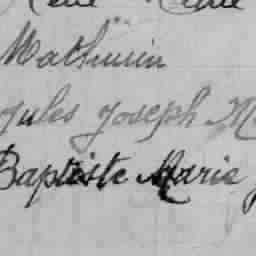 René
Mathurin
Jules Joseph M
Baptiste Marie J